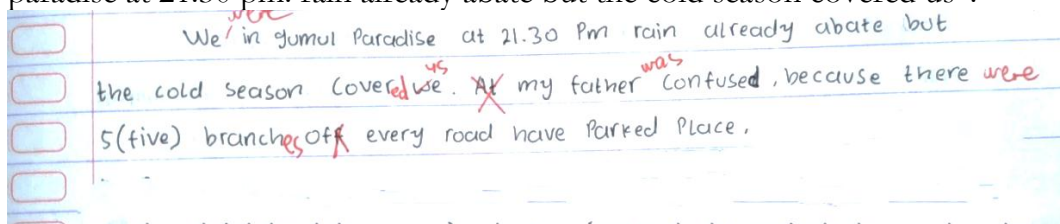 paradise at 21.30 pm. rain already abate but the cold season covered us".
were
We/ in gumul Paradise at 21.30 Pm rain already abate but
us was
the cold season Covered we. At my father Confused, because there were
5(five) branches off every road have Parked Place.